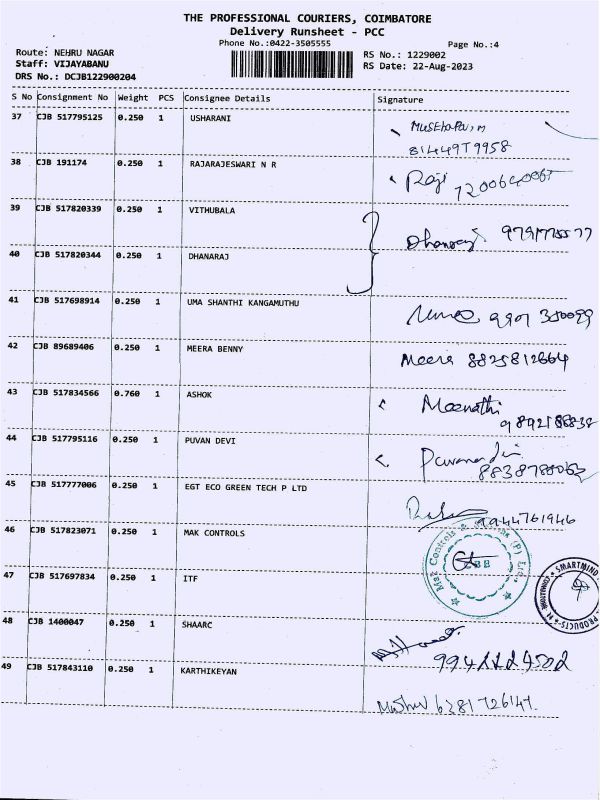 THE PROFESSIONAL COURIERS, COIMBATORE
Delivery Runsheet - PCC
Phone No.:0422-3505555
Page No.:4
Route: NEHRU NAGAR
RS No.: 1229002
Staff: VIJAYABANU
RS Date: 22-Aug-2023
DRS No.: DCJB122900204
S No Consignment No Weight PCS Consignee Details Signature
37 CJB 517795125 0.250 1 USHARANI
38 CJB 191174 0.250 1 RAJARAJESWARI N R
Raji
39 CJB 517820339 0.250 1 VITHUBALA
Dhanraj
40 CJB 517820344 0.250 1 DHANARAJ
41 CJB 517698914 0.250 1 UMA SHANTHI KANGAMUTHU
42 CJB 89689406 0.250 1 MEERA BENNY
Meera 8825812664
43 CJB 517834566 0.760 1 ASHOK
Meenathi
44 CJB 517795116 0.250 1 PUVAN DEVI
45 CJB 517777006 0.250 1 EGT ECO GREEN TECH P LTD
9944761946
46 CJB 517823071 0.250 1 MAK CONTROLS
Mak Controls & (P) Ltd
47 CJB 517697834 0.250 1 ITF
SMARTMIND
PRODUCTS
48 CJB 1400047 0.250 1 SHAARC
49 CJB 517843110 0.250 1 KARTHIKEYAN